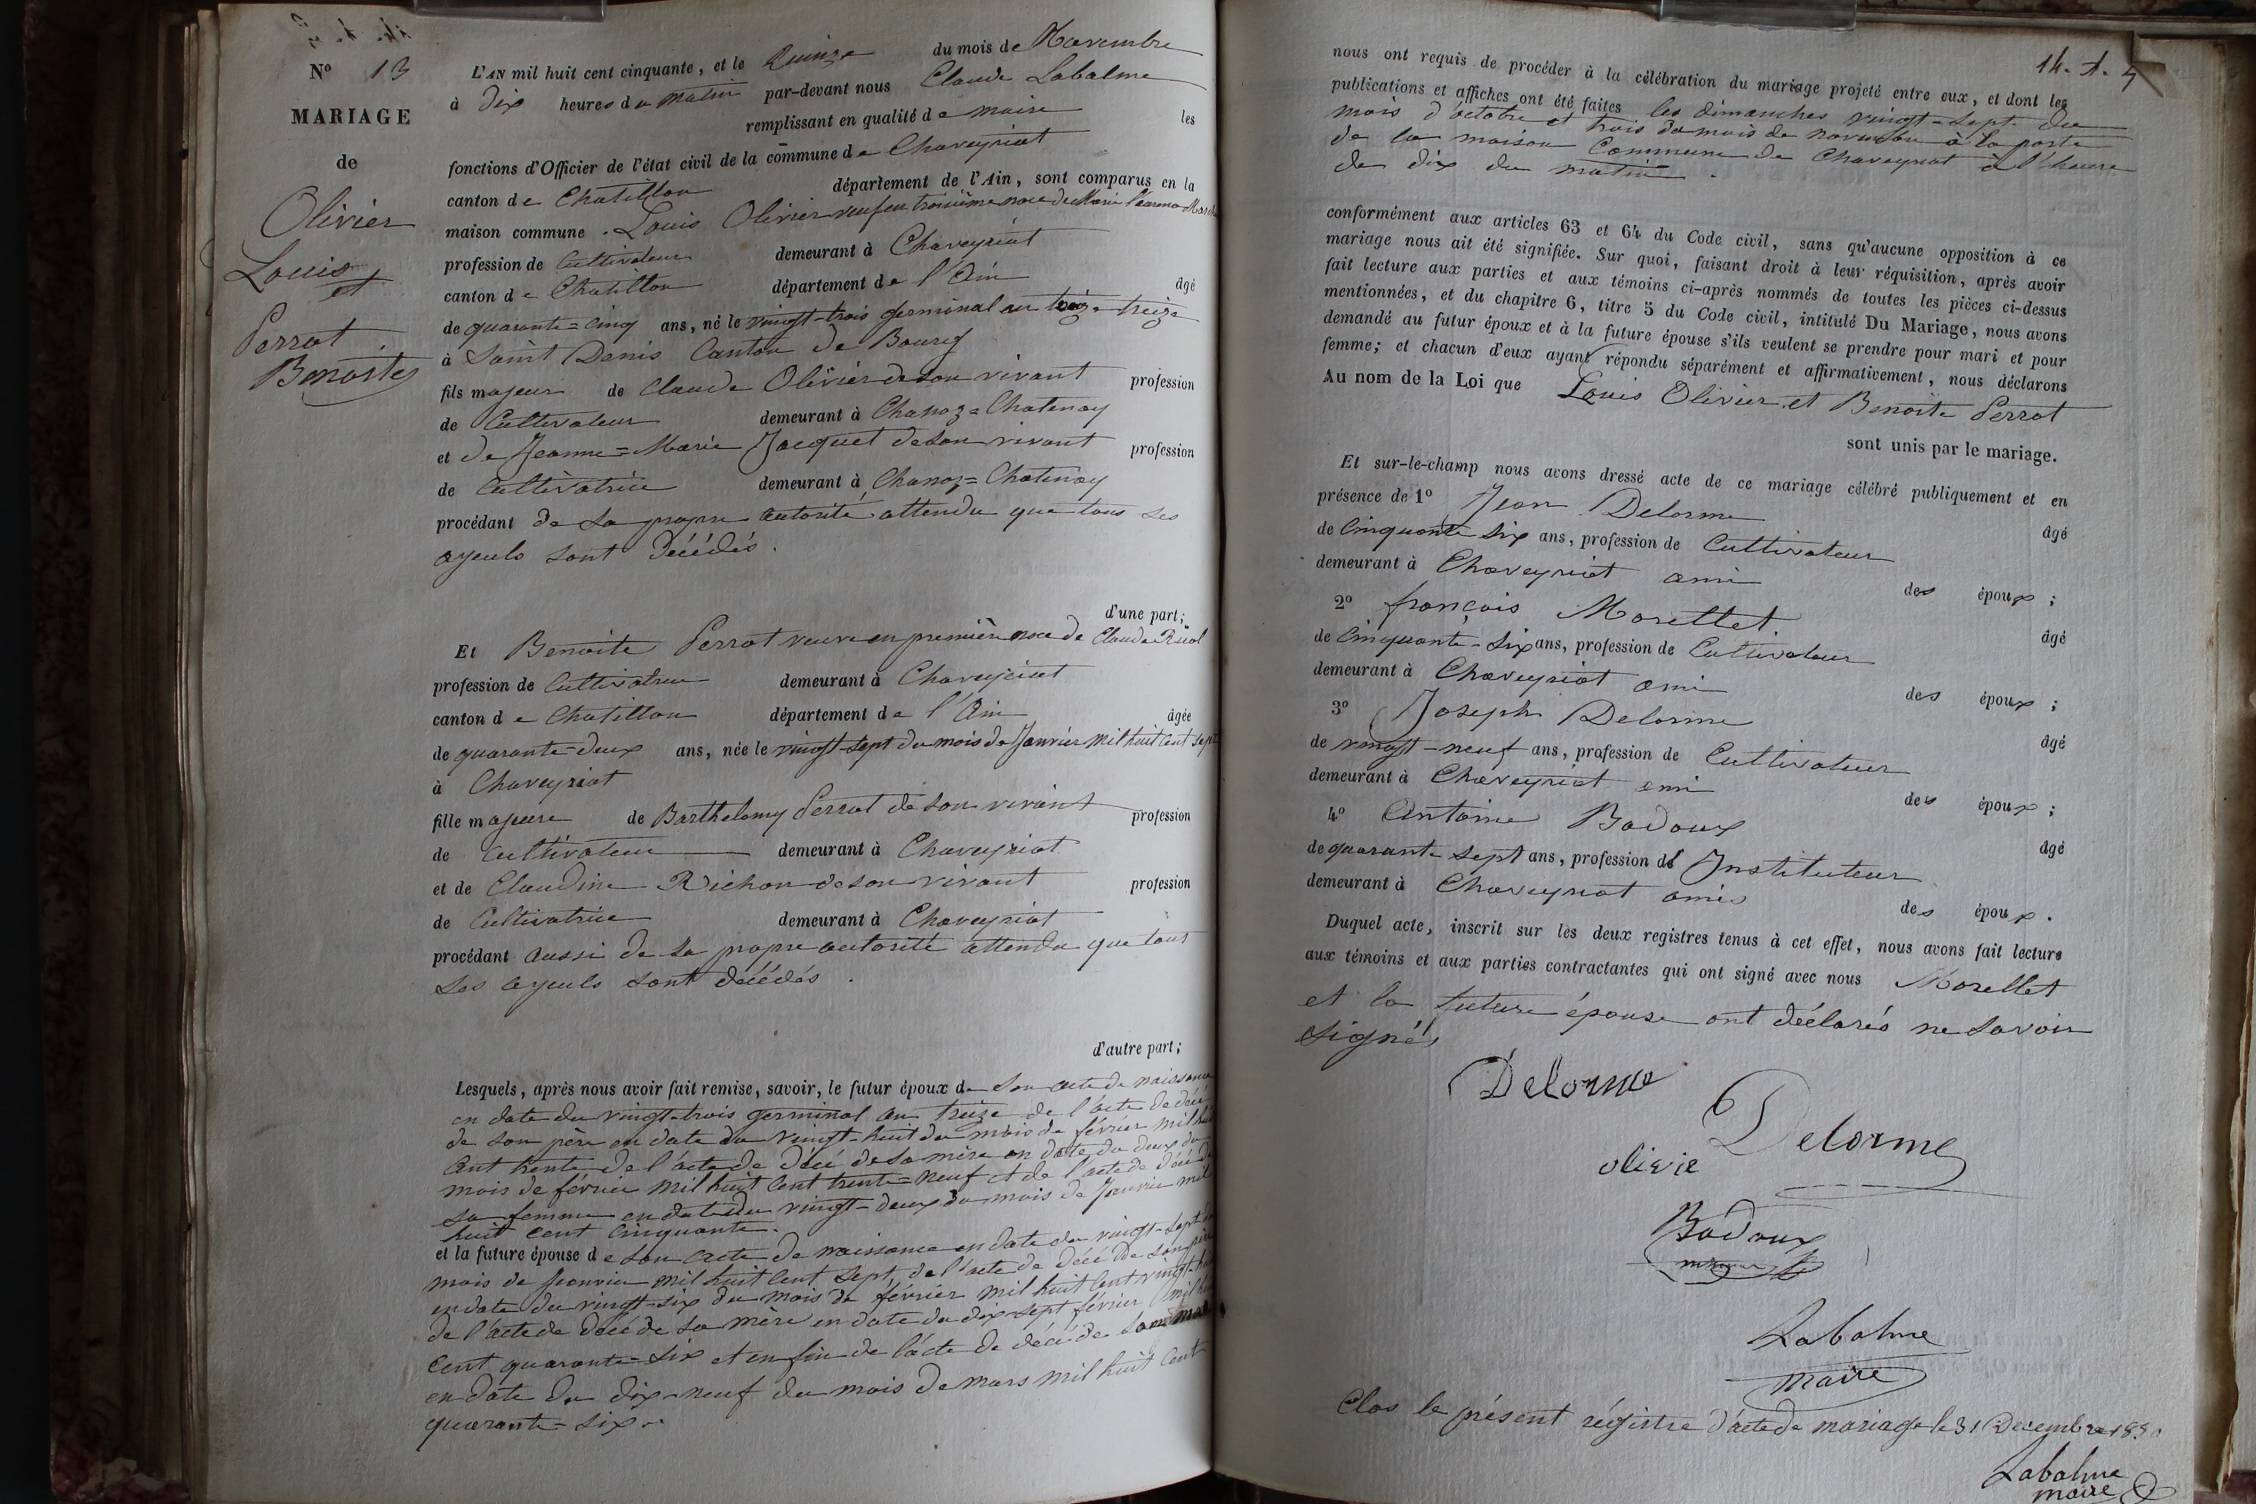 N° 13
MARIAGE
de
Olivier
Louis
et
Perrat
Benoite
L'AN mil huit cent cinquante, et le Quinze du mois de Novembre
à Dix heures du matin par-devant nous Claude Labalme
remplissant en qualité de maire les
fonctions d'Officier de l'état civil de la commune de Chaveyriat
canton de Chatillon département de l'Ain, sont comparus en la
maison commune. Louis Olivier veuf en troisième noce de Marie
profession de Cultivateur demeurant à Chaveyriat
canton de Chatillon département de l'Ain âgé
de quarante=cinq ans, né le vingt-trois germinal an treize
à Saint Denis Canton de Bourg
fils majeur de Claude Olivier de son vivant profession
de Cultivateur demeurant à Chanoz=Chatenay
et de Jeanne=Marie Jacquet de son vivant profession
de Cultivatrice demeurant à Chanoz=Chatenay
procédant de sa propre autorité attendu que tous ses
ayeuls sont décédés.
d'une part;
Et Benoite Perrat veuve en première noce de Claude
profession de Cultivatrice demeurant à Chaveyriat
canton de Chatillon département de l'Ain âgée
de quarante=deux ans, née le vingt-sept du mois de Janvier mil huit cent sept
à Chaveyriat
fille majeure de Barthelemy Perrat de son vivant profession
de Cultivateur demeurant à Chaveyriat
et de Claudine Richon de son vivant profession
de Cultivatrice demeurant à Chaveyriat
procédant aussi de sa propre autorité attendu que tous
ses ayeuls sont décédés.
d'autre part;
Lesquels, après nous avoir fait remise, savoir, le futur époux de son acte de naissance
en date du vingt-trois germinal an treize de l'acte de décé
de son père en date du vingt-huit du mois de février mil huit
cent trente de l'acte de décé de sa mère en date du deux du
mois de février mil huit cent trente=neuf et de l'acte de décé de
sa femme en date du vingt-deux du mois de Janvier mil
huit cent cinquante.
et la future épouse de son acte de naissance en date du vingt-sept du
mois de Janvier mil huit cent sept, de l'acte de décé de son père
en date du vingt-six du mois de février mil huit cent
de l'acte de décé de sa mère en date du dix-sept février mil huit
cent quarante=six et enfin de l'acte de décé de son mari
en date du dix-neuf du mois de mars mil huit cent
quarante=six.
nous ont requis de procéder à la célébration du mariage projeté entre eux, et dont les
publications et affiches ont été faites les dimanches vingt-sept du
mois d'octobre et trois du mois de novembre à la porte
de la maison Commune de Chaveyriat à l'heure
de dix du matin.
conformément aux articles 63 et 64 du Code civil, sans qu'aucune opposition à ce
mariage nous ait été signifiée. Sur quoi, faisant droit à leur réquisition, après avoir
fait lecture aux parties et aux témoins ci-après nommés de toutes les pièces ci-dessus
mentionnées, et du chapitre 6, titre 5 du Code civil, intitulé Du Mariage, nous avons
demandé au futur époux et à la future épouse s'ils veulent se prendre pour mari et pour
femme; et chacun d'eux ayant répondu séparément et affirmativement, nous déclarons
Au nom de la Loi que Louis Olivier et Benoite Perrat
sont unis par le mariage.
Et sur-le-champ nous avons dressé acte de ce mariage célébré publiquement et en
présence de 1° Jean Delorme âgé
de Cinquante six ans, profession de Cultivateur
demeurant à Chaveyriat ami des époux;
2° françois Morellet âgé
de Cinquante-six ans, profession de Cultivateur
demeurant à Chaveyriat ami des époux;
3° Joseph Delorme âgé
de vingt-neuf ans, profession de Cultivateur
demeurant à Chaveyriat ami des époux;
4° Antoine Badoux âgé
de quarante sept ans, profession d' Instituteur
demeurant à Chaveyriat amis des époux.
Duquel acte, inscrit sur les deux registres tenus à cet effet, nous avons fait lecture
aux témoins et aux parties contractantes qui ont signé avec nous Morellet
et la future épouse ont déclarés ne savoir
signés
Delorme
Delorme
olivie
Badoux
Labalme
maire
Clos le présent régistre d'acte de mariage le 31 Decembre 1850
Labalme
maire